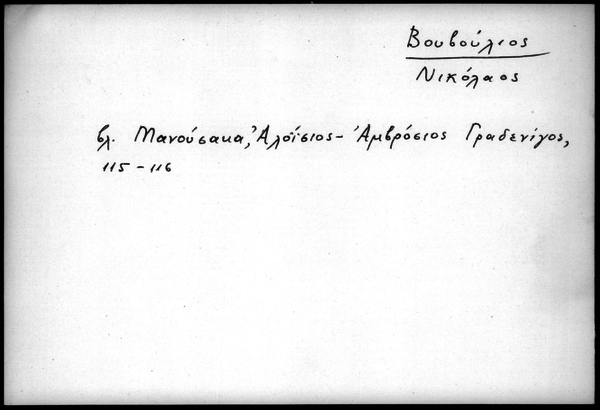 Βουβούλιος
Νικόλαος
βλ. Μανούσακα, Ἀλοΐσιος - Ἀμβρόσιος Γραδενίγος,
115 - 116